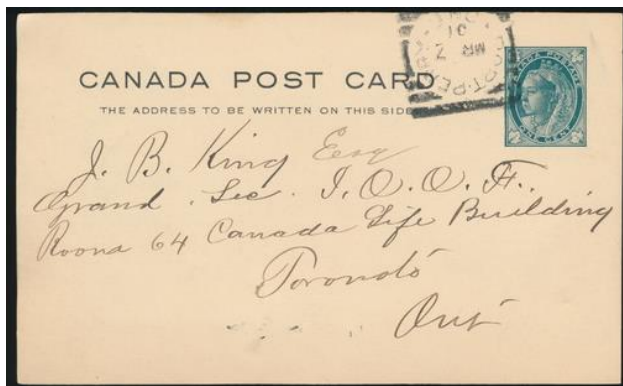 CANADA POST CARD
THE ADDRESS TO BE WRITTEN ON THIS SIDE
PORT-PERRY
MR 2
01
ONT
CANADA POSTAGE
ONE CENT
J. B. King Esq
Grand. Sec. I. O. O. F.
Room 64 Canada Life Building
Toronto
Ont